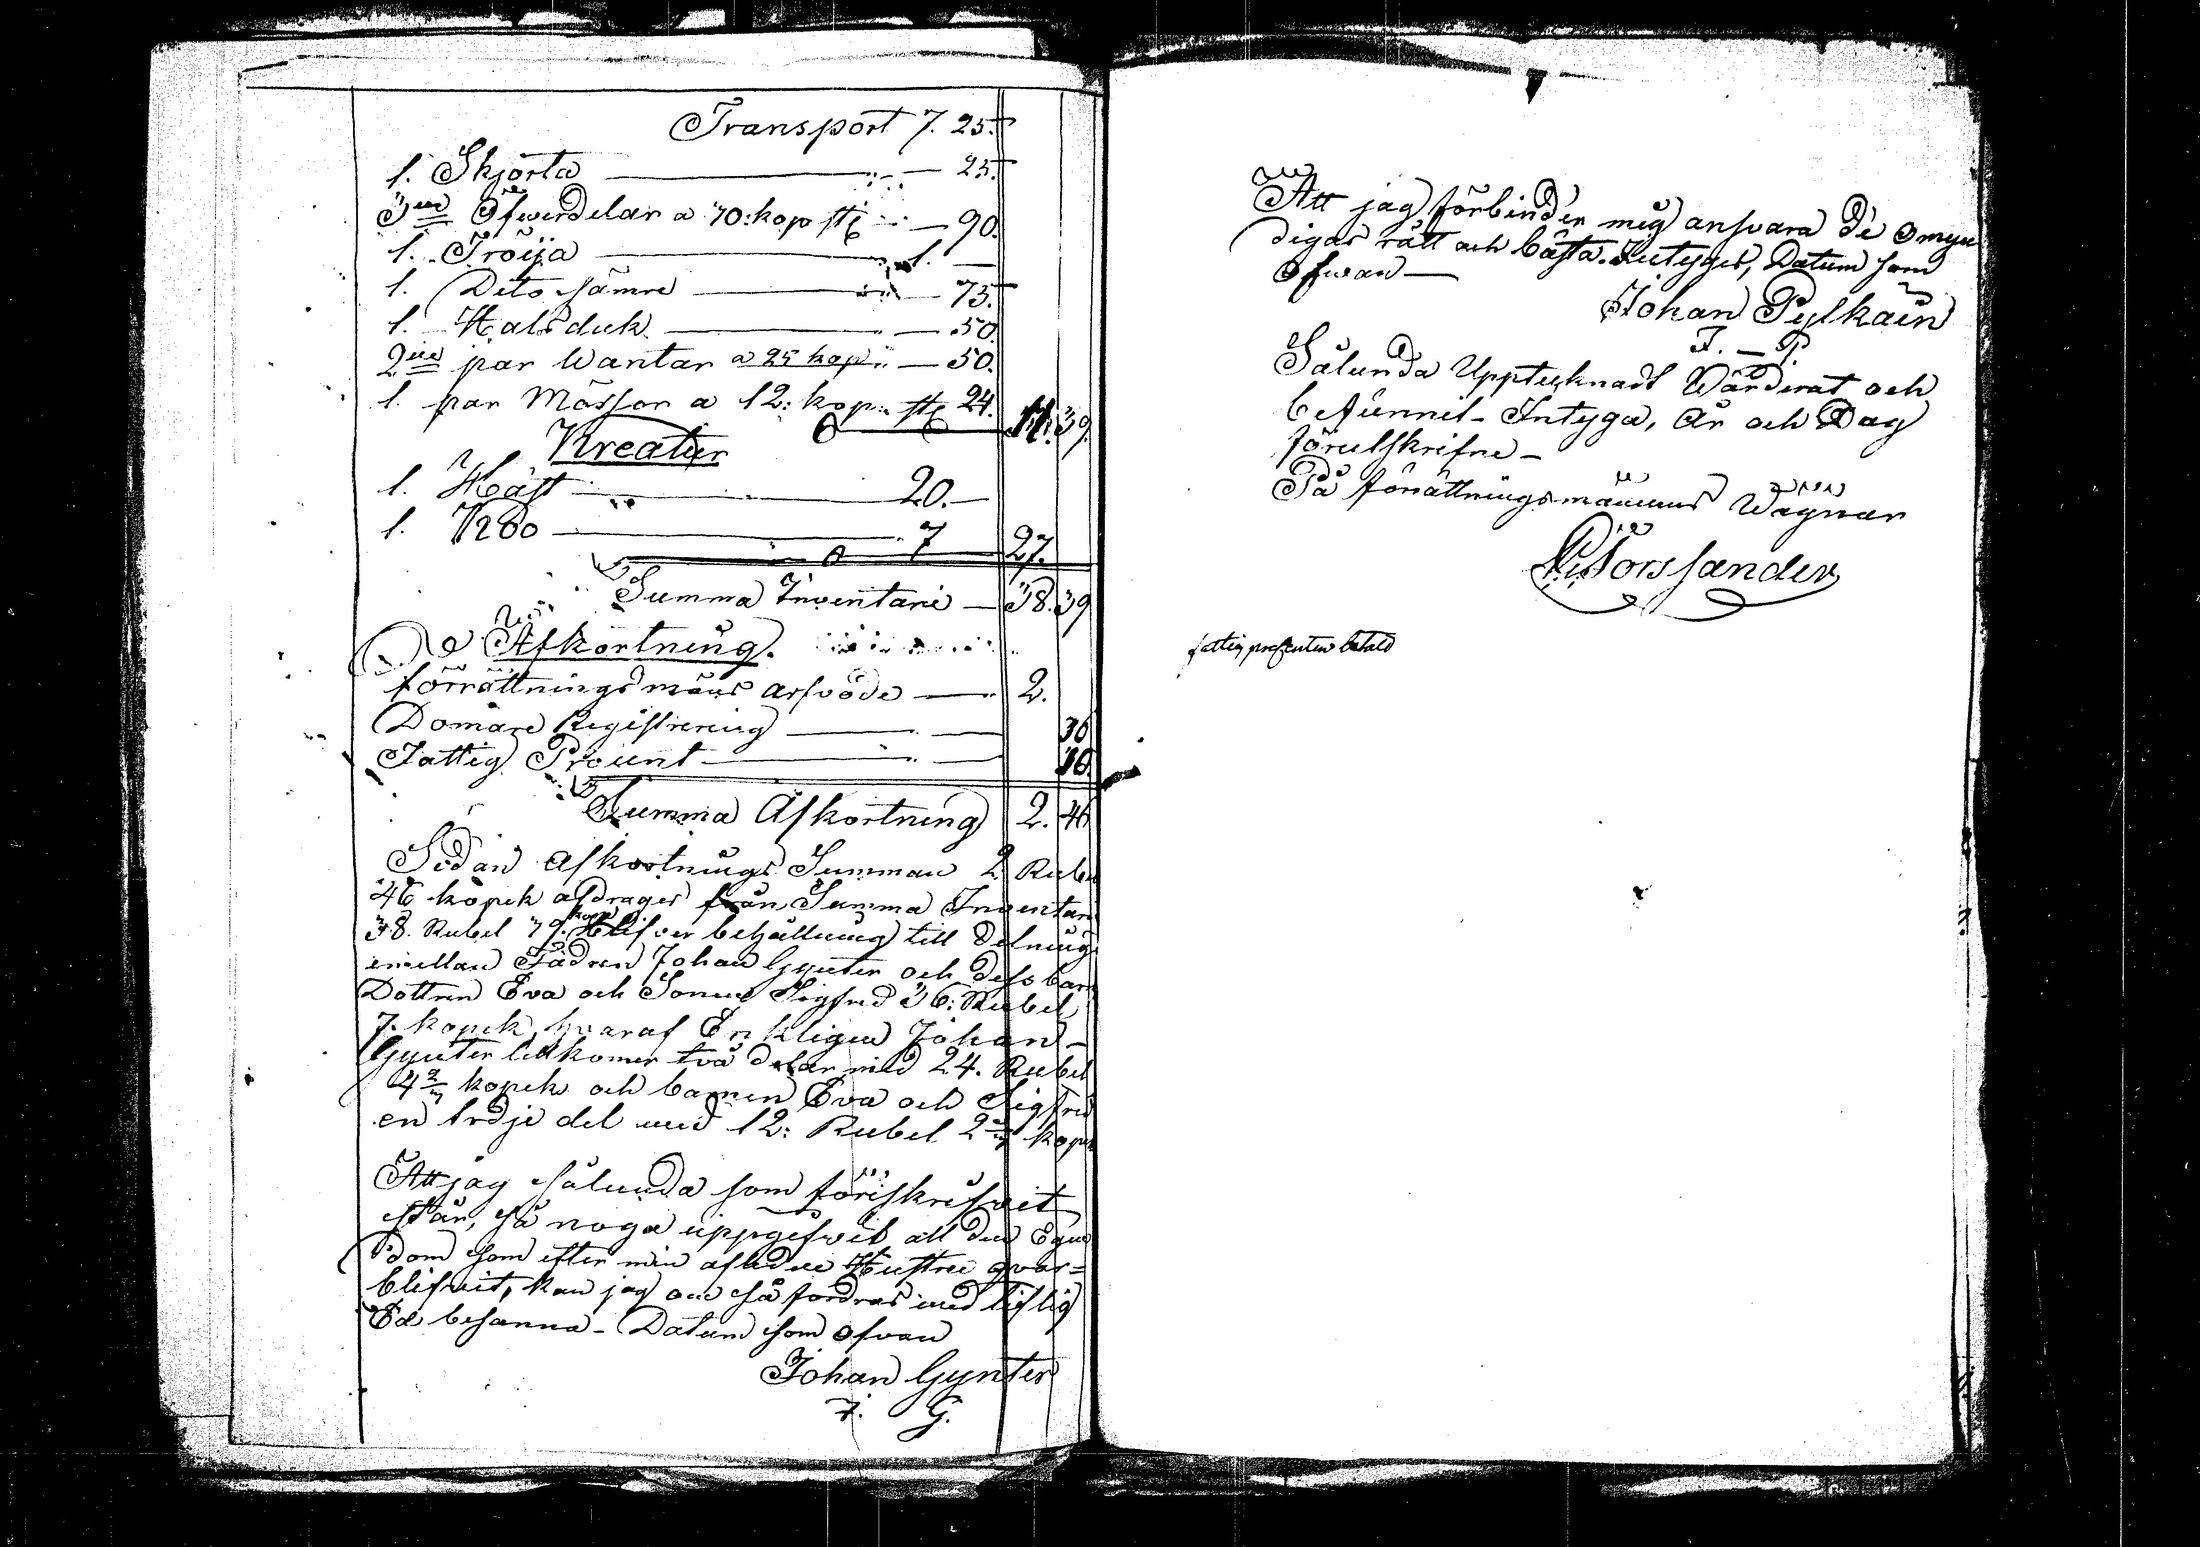 Transport 7. 25.
1. Skjorta — 25.
3ne Öfwerdelar a 30: kop st — 90.
1. Tröija — 1. —
1. Dito sämre — 75.
1. Halsduk — 50
2ne par Wantar a 25 kop — 50.
1. par Mössor a 12: kop. st 24. 11. 39.
Kreatur
1. Häst — 20. —
1. Ko — 7 27.
Summa Inventarie — 38. 39
Afkortning.
förrättningsmäns arfvode — 2.
Domare Registrering — 36
Fattig Procent — 10.
Summa Afkortning 2. 46
Sedan Afkortnings Summan 2 Rubel
46 kopek afdrages från Summa Inventari
38. Rubel 39. kop blifver behållning till delning
imellan Fadren Johan Gynter och dess barn
Dottren Eva och Sonen Sigfred 36: Rubel
7. kopek, hvaraf Enkligen Johan
Gynter tillkomer två delar med 24. Rubel
4 2/3 kopek och barnen Eva och Sigfred
en tredje del med 12: Rubel 2 kopek
Att jag sålunda som föriskrifveit
står, så noga uppgifveit all den Egen
dom som efter min aflidne Hustru qvar=
blifveit, kan jag om så fordras med liflig
Ed besanna - Datum som ofvan
Johan Gynter
J. G.
Att jag förbinder mig ansvara de omyn
digas rätt och bästa. Intyges, Datum som
ofwan —
Johan Pylkäin
J. — P.
Sålunda Upptecknadt Wärderat och
befunnit - Intyga, År och Dag
förutskrifne —
På förrättningsmännens Wägnar
Forssander
fattig procenten betald